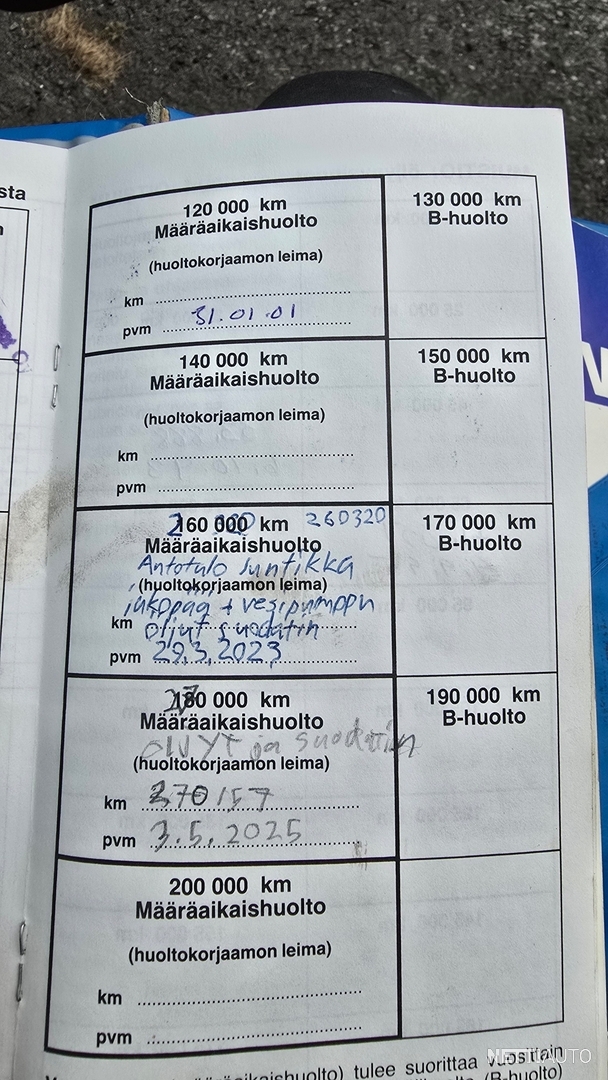 sta
120 000 km
Määräaikaishuolto
(huoltokorjaamon leima)
km
pvm 31.01.01
130 000 km
B-huolto
140 000 km
Määräaikaishuolto
(huoltokorjaamon leima)
km
pvm
150 000 km
B-huolto
160 000 km 260320
Määräaikaishuolto
Antotulo Juntikka
(huoltokorjaamon leima)
jakopää + vesipumppu
km öljyt suodatin
pvm 29.3.2023
170 000 km
B-huolto
180 000 km
Määräaikaishuolto
öljyt ja suodatin
(huoltokorjaamon leima)
km 270157
pvm 3.5.2025
190 000 km
B-huolto
200 000 km
Määräaikaishuolto
(huoltokorjaamon leima)
km
pvm
tulee suorittaa vuosittain
(B-huolto)
NETTIAUTO